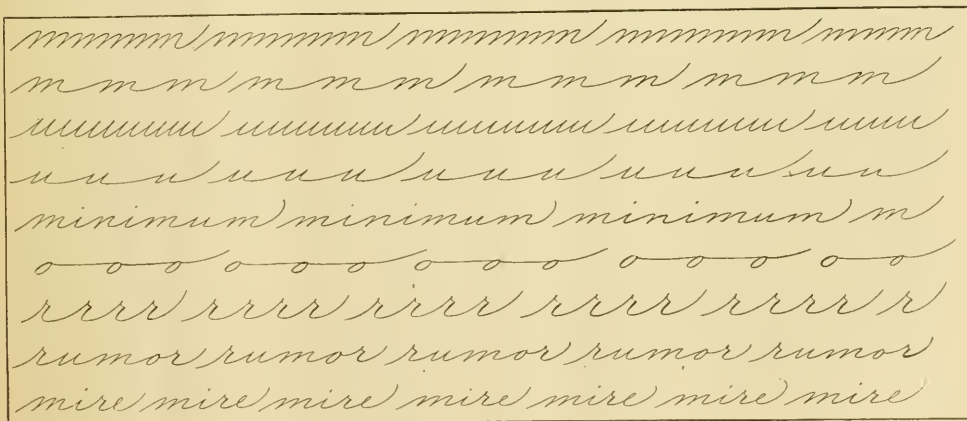 mmmm mmmm mmmm mmmm mmm
m m m m m m m m m m m m
uuuuuu uuuuuu uuuuuu uuuuuu uuuu
u u u u u u u u u u u u u u
minimum minimum minimum m
o o o o o o o o o o o o o o
rrrr rrrr rrrr rrrr rrrr r
rumor rumor rumor rumor rumor
mire mire mire mire mire mire mire